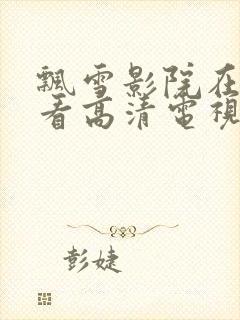 飄雪影院在
看高清電視
彭婕